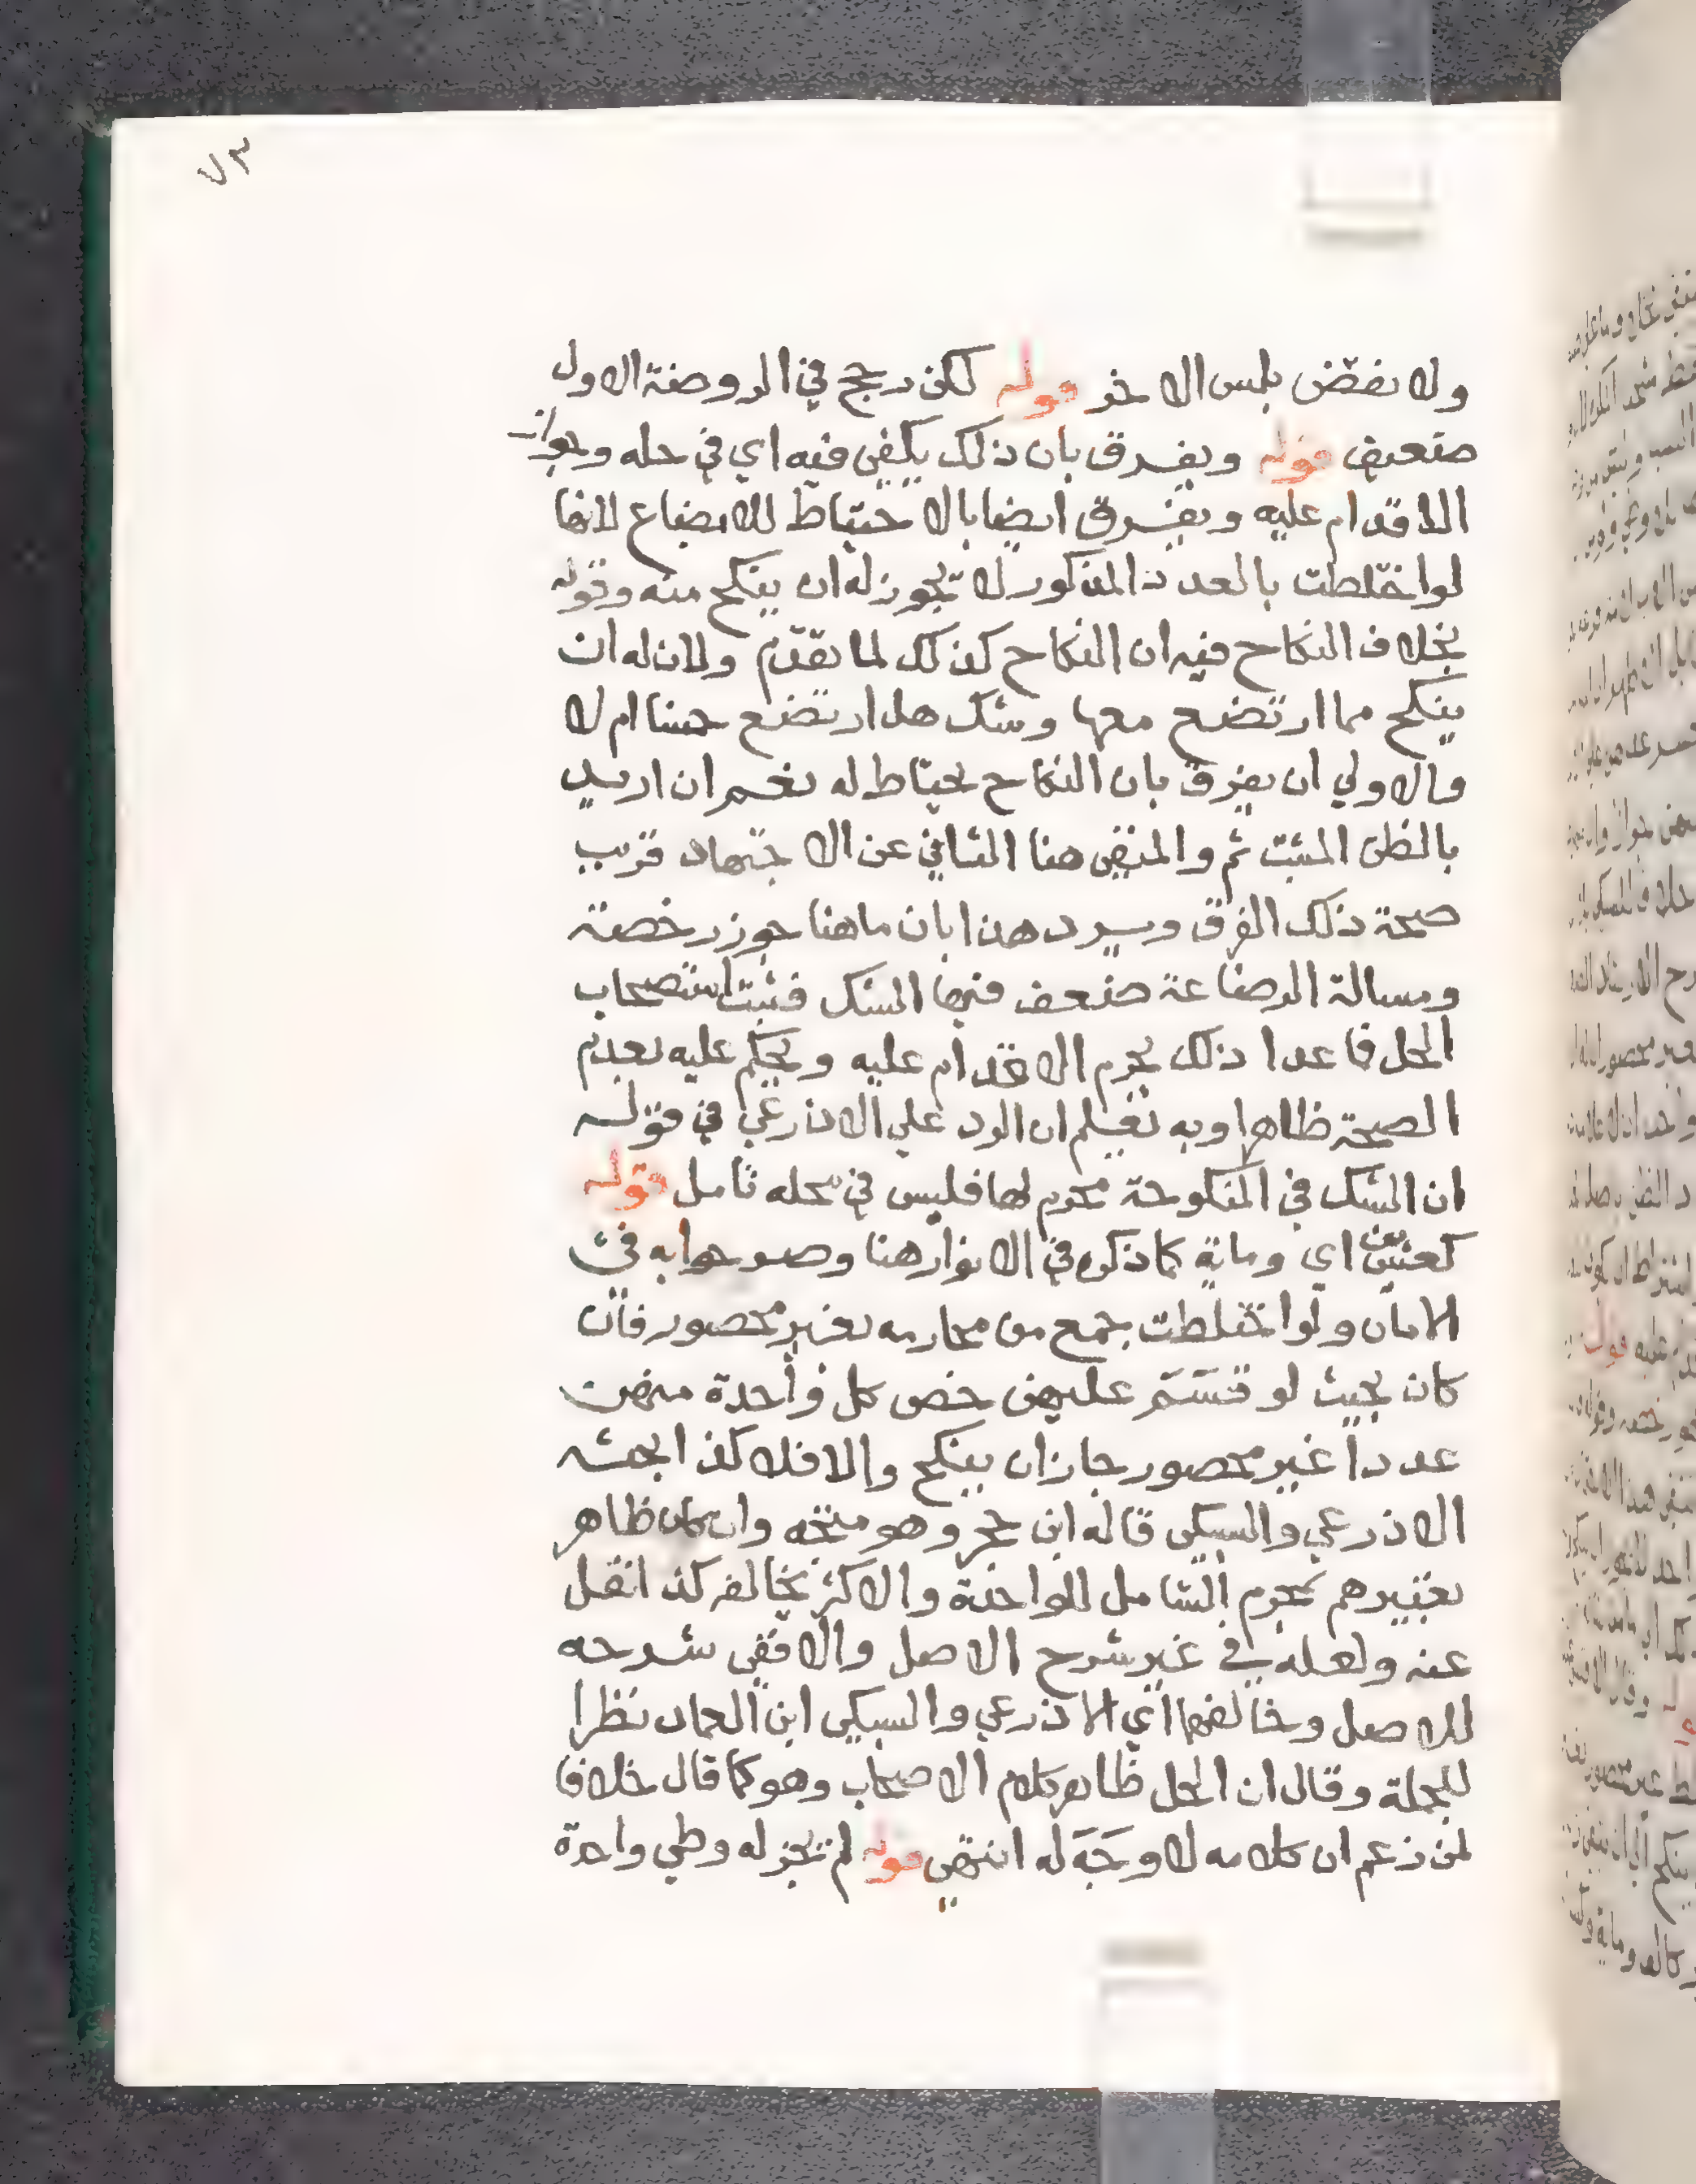 ٧٣
ولا نقض بلمس الاخر قوله لكن رجح في الروضة الاول
ضعيف قوله ويفرق بان ذلك يكفي فيه اي في حله وجواز
الاقدام عليه ويفرق ايضا بالاحتياط للابضاع لانها
لو اختلطت بالعدد المذكور لا يجوز له ان ينكح منه وقوله
بخلاف النكاح فيه ان النكاح كذلك لما تقدم ولان له ان
ينكح مما ارتضع معها وشك هل ارتضع خمسا ام لا
والاولي ان يفرق بان النكاح يحتاط له نعم ان اريد
بالظن المثبت ثم والمنفي هنا الناشي عن الاجتهاد قرب
صحة ذلك الفرق ويرد هذا بان ما هنا جوز رخصة
ومسالة الرضاعة ضعف فيها الشك فثبت استصحاب
الحل فاعدا ذلك يحرم الاقدام عليه ويحكم عليه بعدم
الصحة ظاهرا وبه تعلم ان الرد علي الاذرعي في قوله
ان الشك في المنكوحة محرم لها فليس في محله تامل قوله
كعشرين اي وماية كما ذكره في الانوار هنا وصرحوا به في
الامان ولو اختلطت جمع من محارمه بغير محصور فان
كان بحيث لو قسم عليهن خص كل واحدة منهن
عددا غير محصور جاز ان ينكح والا فلا كذا بحثه
الاذرعي والسبكي قاله ابن حجر وهو متجه وان كان ظاهر
تعبيرهم بمحرم الشامل للواحدة والاكثر يخالفه كذا نقل
عنه ولعله في غير شرح الاصل والا ففي شرحه
للاصل وخالفهما اي الاذرعي والسبكي ابن العماد نظرا
للجملة وقال ان الحل ظاهر كلام الاصحاب وهو كما قال خلافا
لمن زعم ان كلامه لا وجه له انتهي قوله لم يجز له وطي واحدة